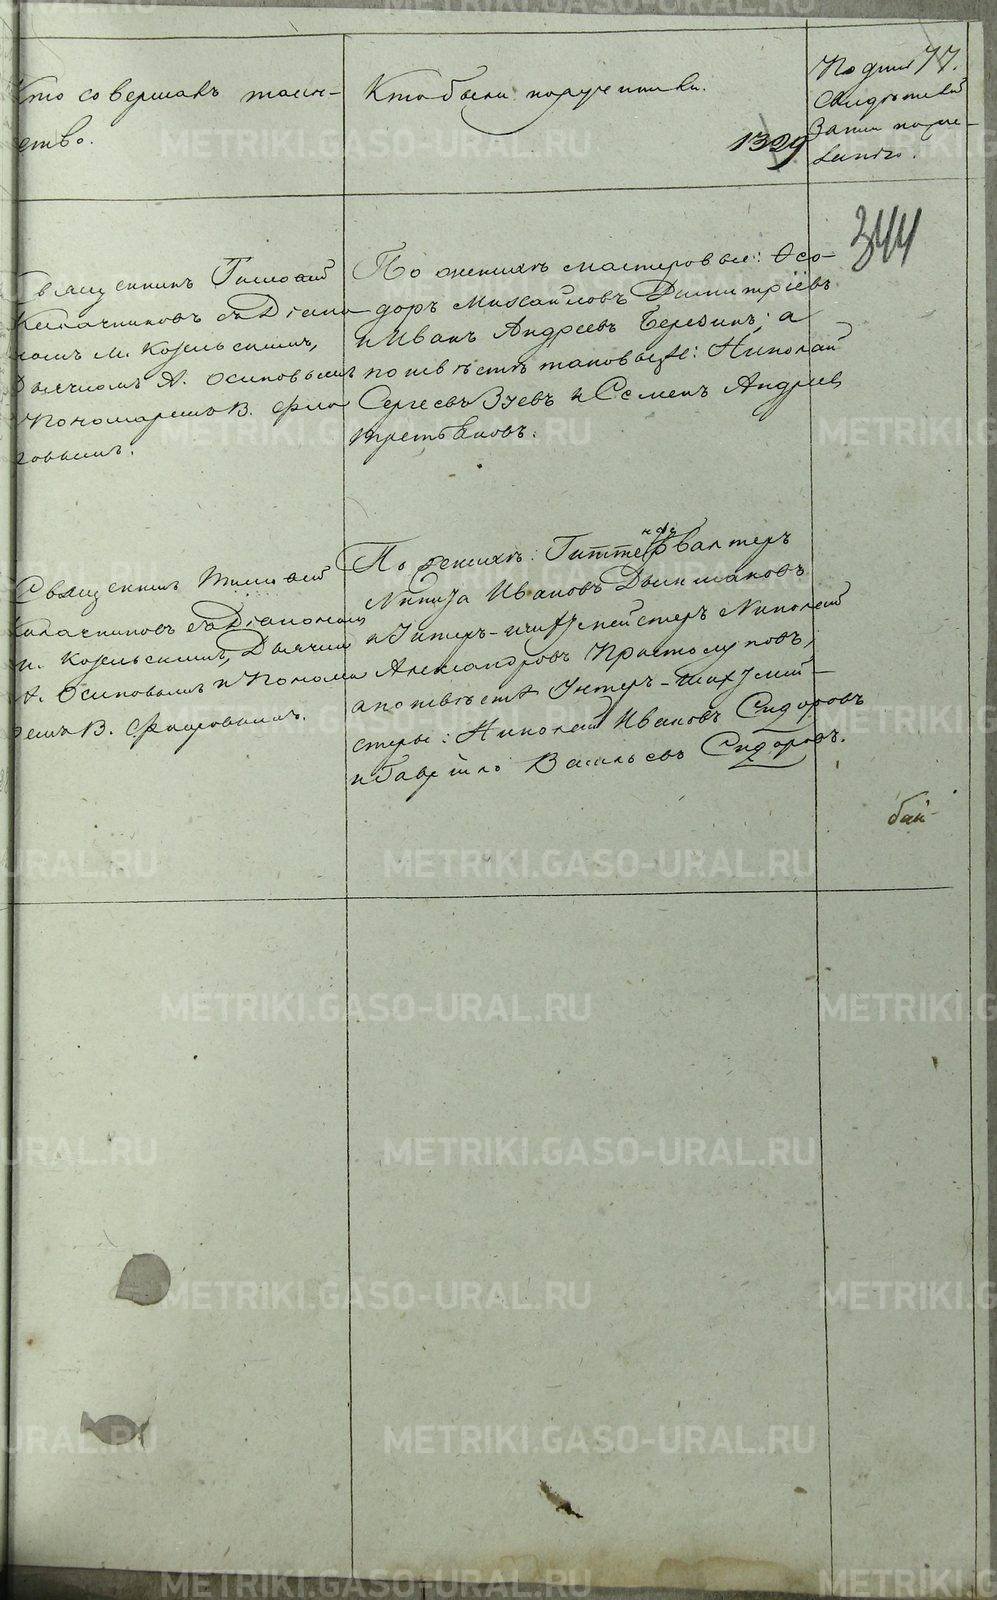 Кто совершалъ таин-
ство.
Кто были поручители.
1329
Подпись
свидѣтелей
записи по же-
ланію.
344
Священникъ Тимоѳей
Калачниковъ съ Діако
номъ М. Козельскимъ,
Дьячкомъ А. Осиповымъ
Пономаремъ В. Фло
ровымъ.
По женихѣ мастеровые: Ѳео-
доръ Михайловъ Димитріевъ
и Иванъ Андреевъ Березинъ; а
по невѣстѣ таковые же: Николай
Сергеевъ Зуевъ и Семенъ Андреев
Третьяковъ.
Священникъ Тимоѳей
Калачниковъ съ Діакономъ
М. Козельскимъ, Дьячкомъ
А. Осиповымъ и Понома
ремъ В. Флоровымъ.
По женихѣ: Гиттенфервалтеръ
Никита Ивановъ
и Унтеръ-шихтмейстеръ Николай
Александровъ Простолуповъ,
а по невѣстѣ Унтеръ-шихтмей-
стеры: Николай Ивановъ Сидоровъ
и Гаврило Васильевъ Сидоровъ.
METRIKI.GASO-URAL.RU